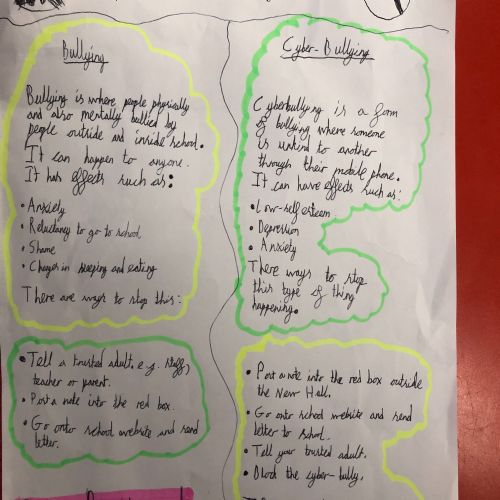 Bullying
Bullying is where people physically
and also mentally bullied by
people outside and inside school.
It can happen to anyone.
It has effects such as:
• Anxiety
• Reluctancy to go to school
• Shame
• Changes in sleeping and eating
There are ways to stop this:
• Tell a trusted adult. e.g. staff,
teacher or parent.
• Post a note into the red box.
• Go onto school website and send
letter.
Cyber-Bullying
Cyberbullying is a form
of bullying where someone
is unkind to another
through their mobile phone.
It can have effects such as:
• Low-self esteem
• Depression
• Anxiety
There ways to stop
this type of thing
happening.
• Post a note into the red box outside
the New Hall.
• Go onto school website and send
letter to school.
• Tell your trusted adult.
• Block the cyber-bully.